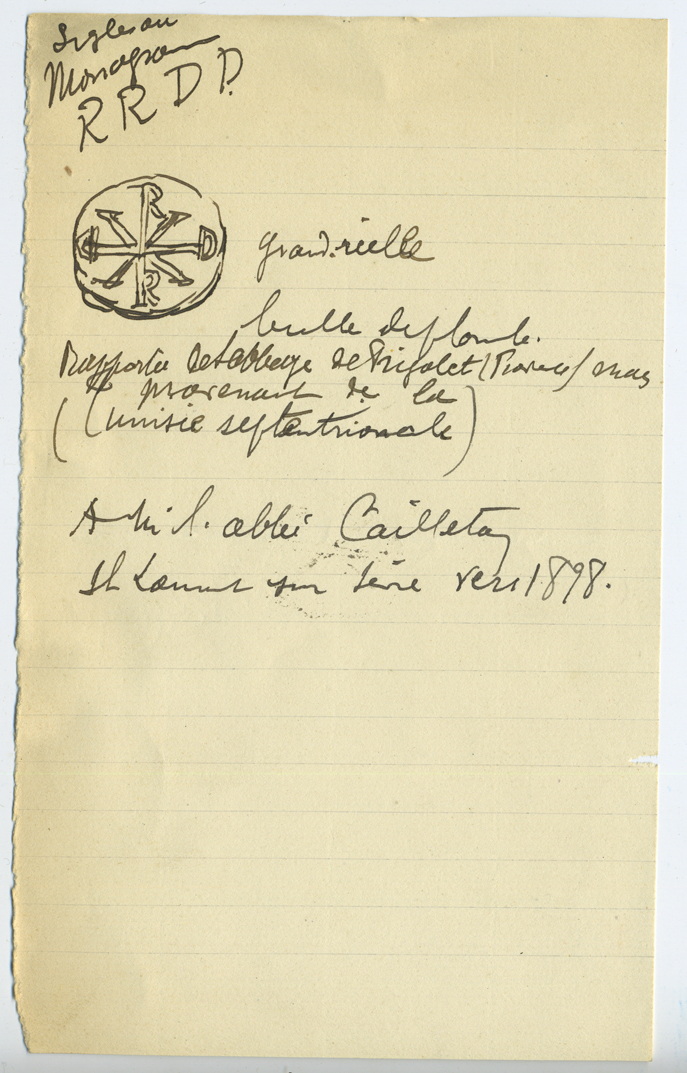 Sigles ou
Monogram
R R D D
R
D D
R
grand. réelle
bulle de plomb.
Rapportée de l'abbaye de Frigolet (Provence) mais
provenant de la
(Tunisie septentrionale)
A M. l. abbé Cailleta
St Laurent sur Sèvre vers 1898.